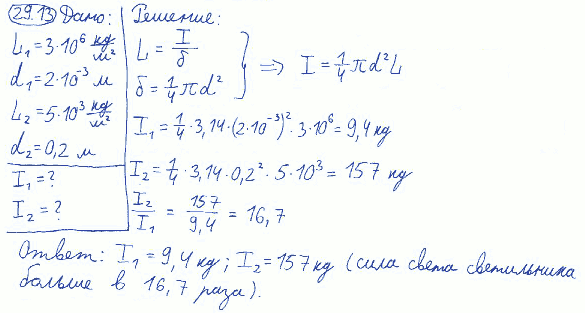 29.13 Дано: Решение:
L₁=3·10⁶ кд/м²
d₁=2·10⁻³ м
L₂=5·10³ кд/м²
d₂=0,2 м
I₁=?
I₂=?
L = I/δ
δ = 1/4 πd² } ⇒ I = 1/4 πd²L
I₁ = 1/4 · 3,14·(2·10⁻³)² · 3·10⁶ = 9,4 кд
I₂ = 1/4 · 3,14·0,2² · 5·10³ = 157 кд
I₂/I₁ = 157/9,4 = 16,7
Ответ: I₁=9,4 кд; I₂=157 кд (сила света светильника
больше в 16,7 раза).